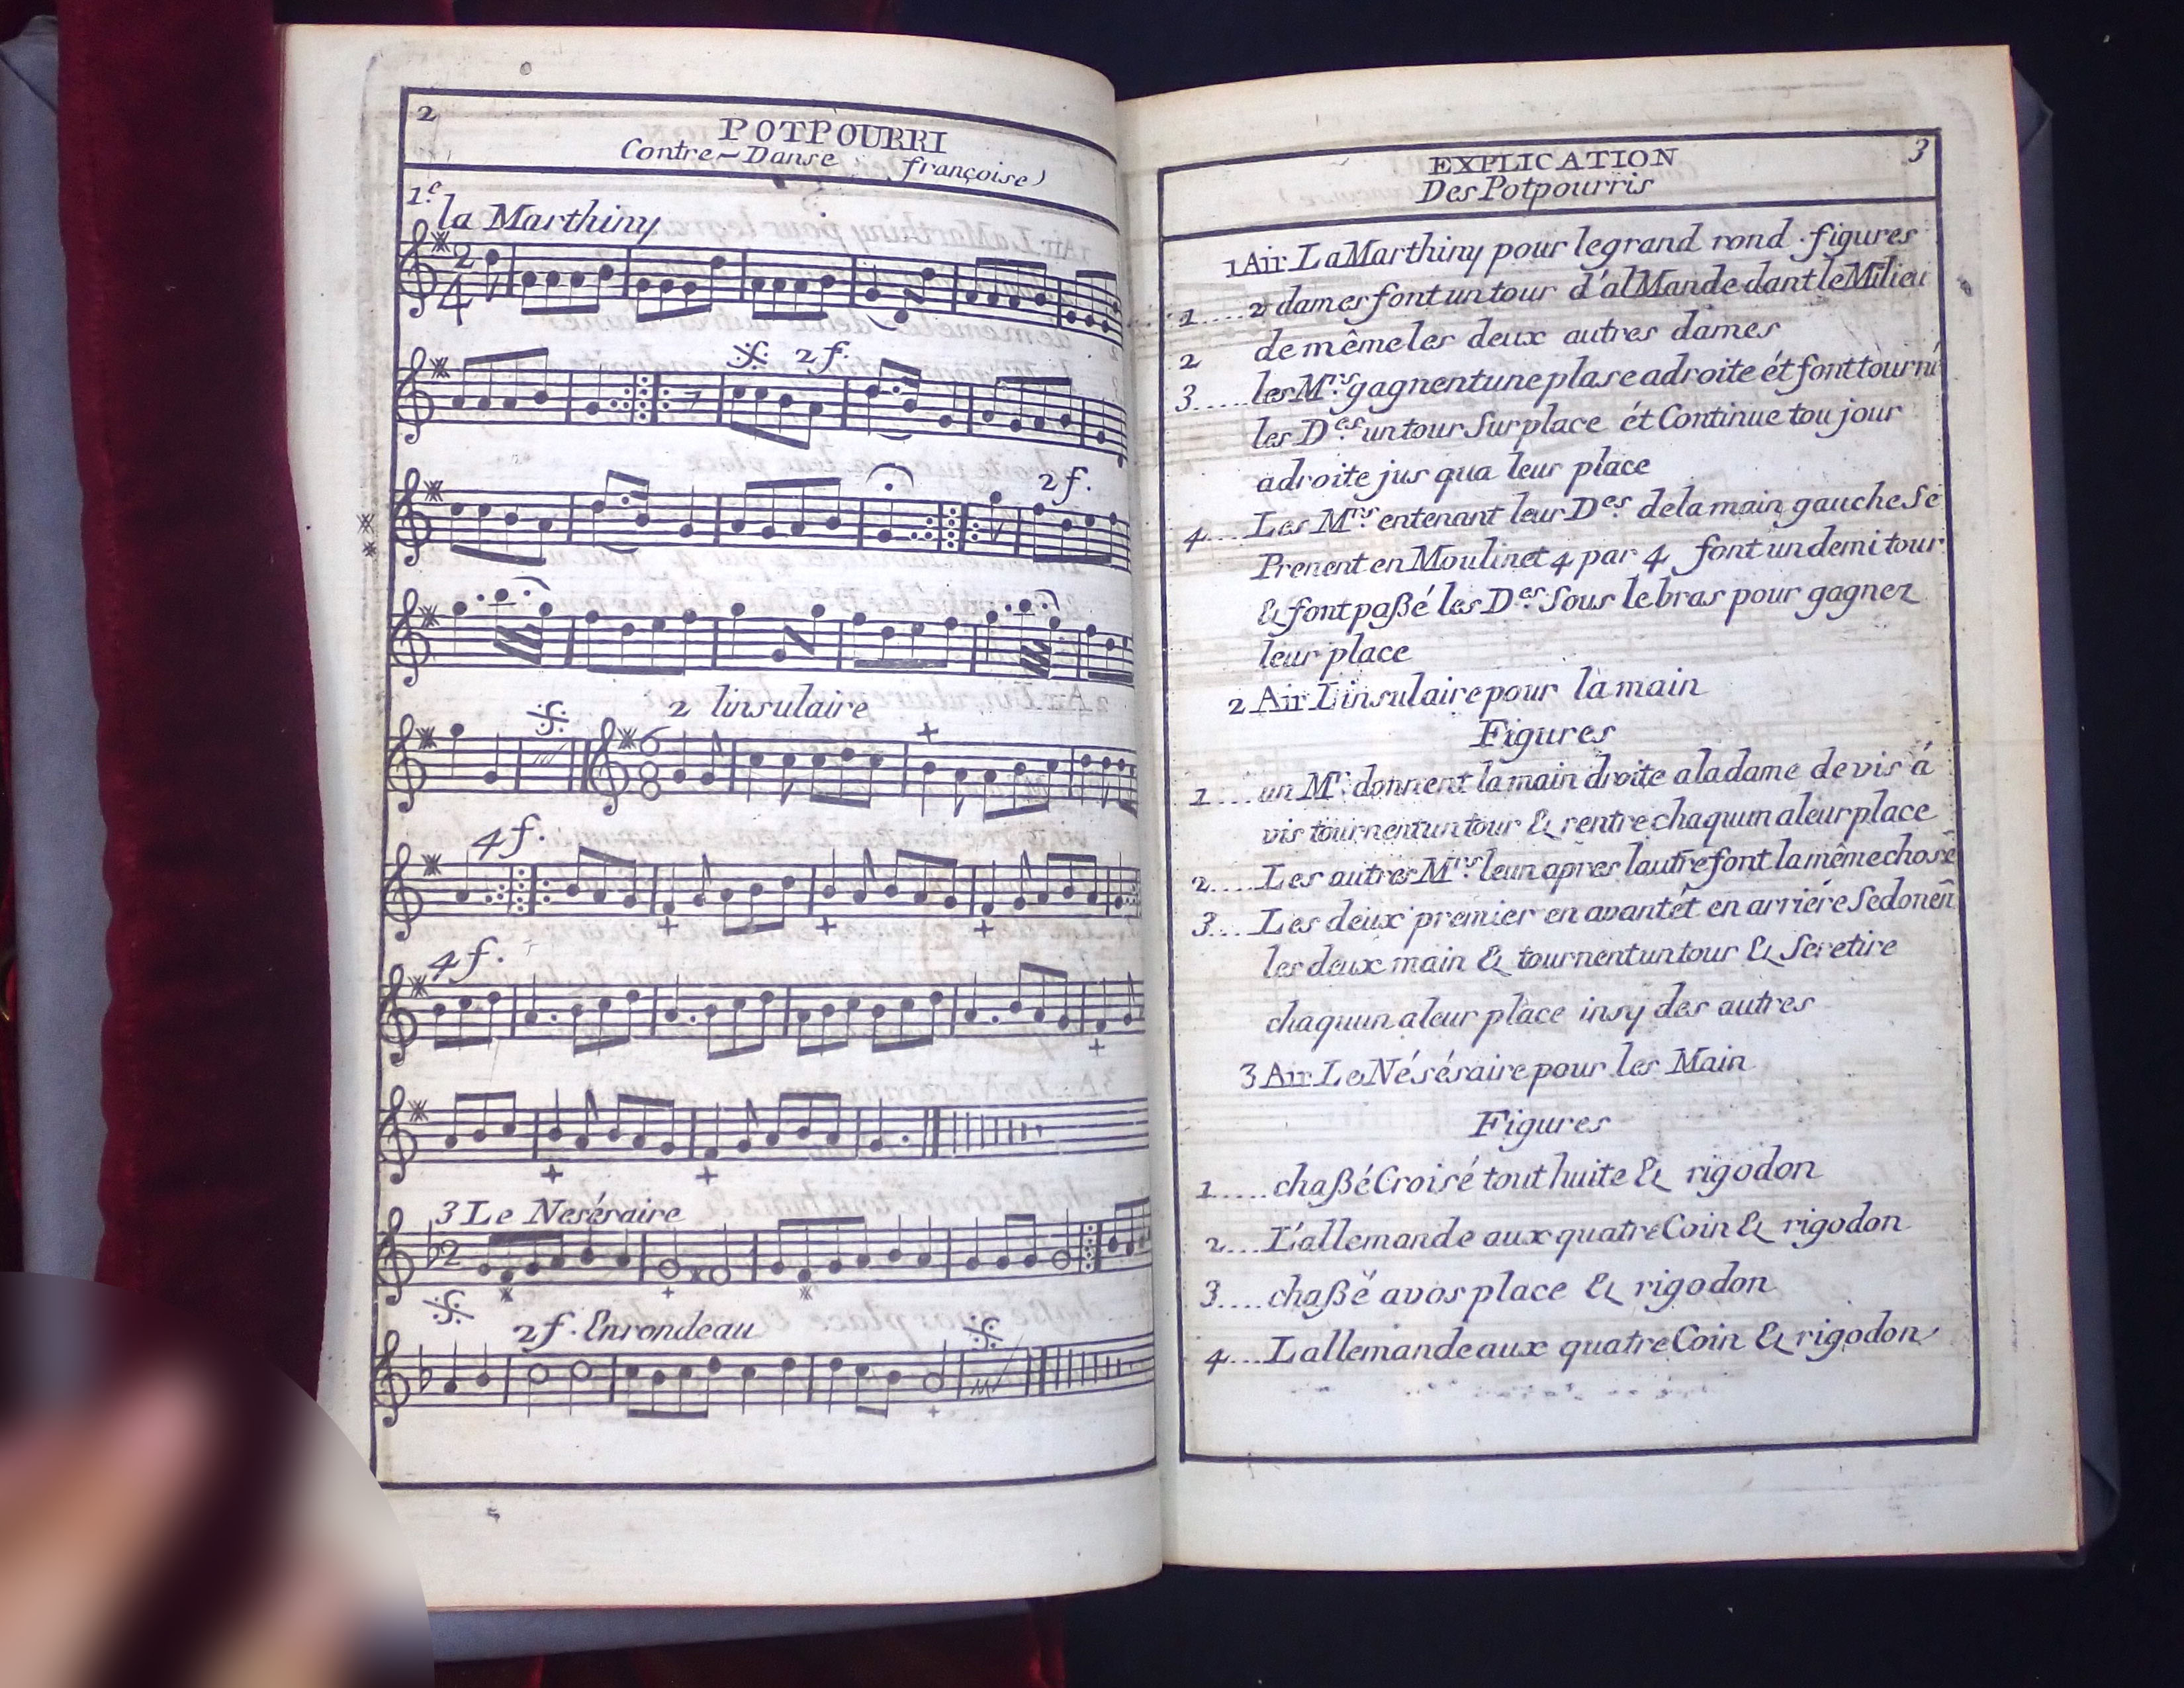 2
POTPOURRI
Contre-Danse françoise
1.e la Marthiny
2 4
2 f.
2 f.
2 linsulaire
6 8
4 f.
4 f.
3 Le Nesésaire
2
2 f. Enrondeau
EXPLICATION 3
Des Potpourris
1 Air La Marthiny pour le grand rond. figures
1.... 2 dames font un tour d'alMande dant le Milieu
2 de même les deux autres dames
3.... les M.rs gagnent une plase adroite ét font tourné
les D.es un tour Sur place ét Continue tou jour
adroite jus qua leur place
4... Les M.rs entenant leur D.es de la main gauche Se
Prenent en Moulinet 4 par 4 font un demi tour
& font paßé les D.es Sous le bras pour gagnez
leur place
2 Air Linsulaire pour la main
Figures
1.... un M.r donnent la main droite a la dame de vis á
vis tournent un tour & rentre chaquun a leur place
2.... Les autres M.rs leun apres lautre font la même chose
3.... Les deux premier en avant ét en arriére Se doneñ
les deux main & tournent un tour & Se retire
chaquun a leur place insy des autres
3 Air Le Nésésaire pour les Main
Figures
1..... chaßé Croisé tout huite & rigodon
2.... L'allemande aux quatre Coin & rigodon
3.... chaßé a vos place & rigodon
4.... Lallemande aux quatre Coin & rigodon